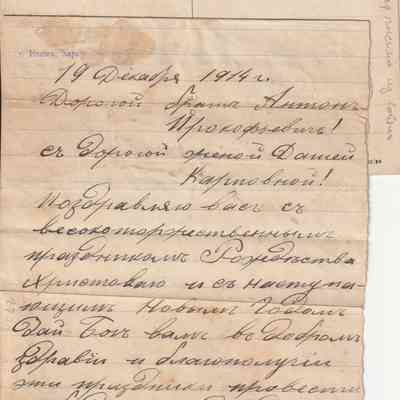 19 Декабря 1914 г.
Дорогой брата Антонъ
Прокофьевичъ!
съ Дорогой женой Дашей
Карповной!
Поздравляю васъ съ
высокоторжественнымъ
праздникомъ Рождества
Христоваго и съ наступа-
ющимъ Новымъ Годомъ
Дай Богъ вамъ въ добромъ
здравіи и благополучіи
эти праздники провести